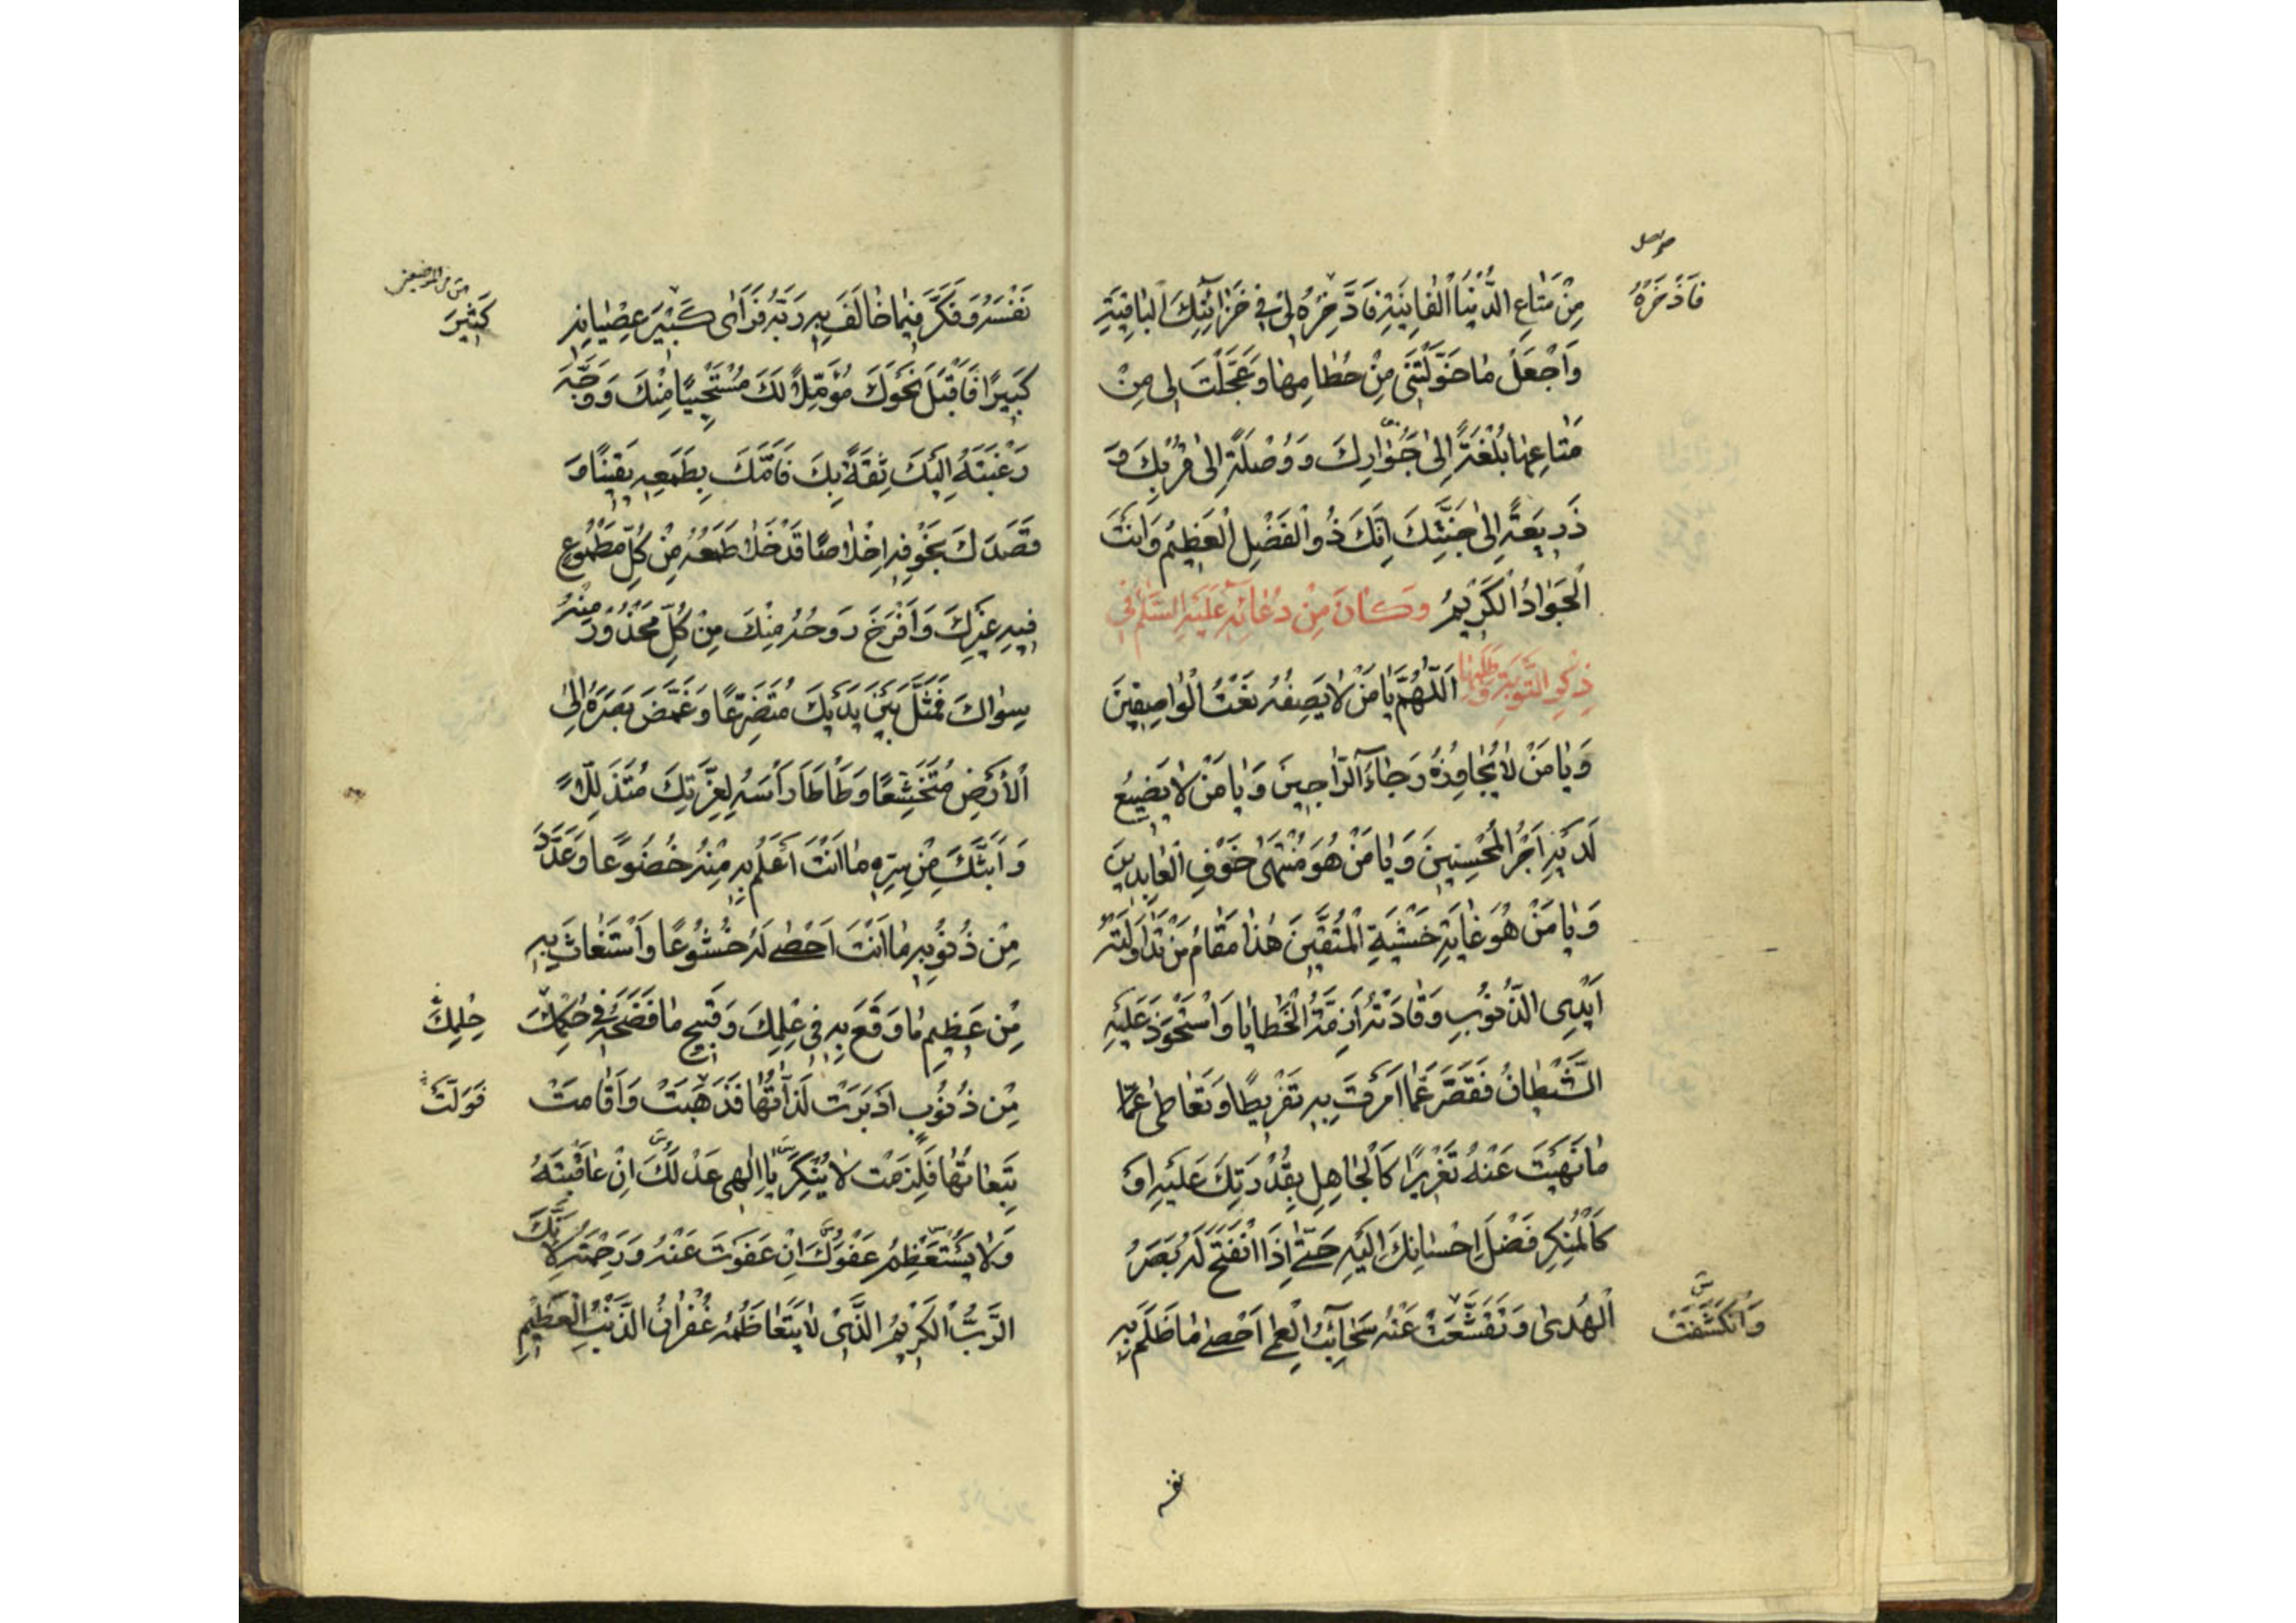 فَاَذْخَرَهُ
مِنْ مَتَاعِ الدُّنْيَا الْفَانِيَةِ فَادَّخِرْهُ لِي فِي خَزَائِنِكَ الْبَاقِيَةِ
وَاجْعَلْ مَا خَوَّلْتَنِي مِنْ حُطَامِهَا وَعَجَّلْتَ لِي مِنْ
مَتَاعِهَا بُلْغَةً اِلَى جِوَارِكَ وَوُصْلَةً اِلَى قُرْبِكَ وَ
ذَرِيعَةً اِلَى جَنَّتِكَ اِنَّكَ ذُو الْفَضْلِ الْعَظِيمِ وَاَنْتَ
الْجَوَادُ الْكَرِيمُ وَكَانَ مِنْ دُعَائِهِ عَلَيْهِ السَّلَامُ فِي
ذِكْرِ التَّوْبَةِ وَطَلَبِهَا اَللّٰهُمَّ يَا مَنْ لَا يَصِفُهُ نَعْتُ الْوَاصِفِينَ
وَيَا مَنْ لَا يُجَاوِزُهُ رَجَاءُ الرَّاجِينَ وَيَا مَنْ لَا يَضِيعُ
لَدَيْهِ اَجْرُ الْمُحْسِنِينَ وَيَا مَنْ هُوَ مُنْتَهَى خَوْفِ الْعَابِدِينَ
وَيَا مَنْ هُوَ غَايَةُ خَشْيَةِ الْمُتَّقِينَ هٰذَا مَقَامُ مَنْ تَدَاوَلَتْهُ
اَيْدِي الذُّنُوبِ وَقَادَتْهُ اَزِمَّةُ الْخَطَايَا وَاسْتَحْوَذَ عَلَيْهِ
الشَّيْطَانُ فَقَصَّرَ عَمَّا اَمَرْتَ بِهِ تَفْرِيطًا وَتَعَاطَى عَمَّا
مَا نَهَيْتَ عَنْهُ تَغْرِيرًا كَالْجَاهِلِ بِقُدْرَتِكَ عَلَيْهِ اَوْ
كَالْمُنْكِرِ فَضْلَ اِحْسَانِكَ اِلَيْهِ حَتَّى اِذَا انْفَتَحَ لَهُ بَصَرُ
الْهُدَى وَتَقَشَّعَتْ عَنْهُ سَحَائِبُ الْعَمَى اَحْصَى مَا ظَلَمَ بِهِ
وَانْكَشَفَتْ
نفسه
كَثِيرَ
نَفْسَهُ وَفَكَّرَ فِيمَا خَالَفَ بِهِ رَبَّهُ فَرَاَى كَبِيرَ عِصْيَانِهِ
كَبِيرًا فَاَقْبَلَ نَحْوَكَ مُؤَمِّلًا لَكَ مُسْتَحْيِيًا مِنْكَ وَوَجَّهَ
رَغْبَتَهُ اِلَيْكَ ثِقَةً بِكَ فَاَمَّكَ بِطَمَعِهِ يَقِينًا وَ
قَصَدَكَ بِخَوْفِهِ اِخْلَاصًا قَدْ خَلَا طَمَعُهُ مِنْ كُلِّ مَطْمُوعٍ
فِيهِ غَيْرِكَ وَاَفْرَخَ رَوْعُهُ مِنْكَ مِنْ كُلِّ مَحْذُورٍ مِنْهُ
سِوَاكَ فَمَثَلَ بَيْنَ يَدَيْكَ مُتَضَرِّعًا وَغَمَّضَ بَصَرَهُ اِلَى
الْاَرْضِ مُتَخَشِّعًا وَطَاْطَاَ رَاْسَهُ لِعِزَّتِكَ مُتَذَلِّلًا
وَاَبَثَّكَ مِنْ سِرِّهِ مَا اَنْتَ اَعْلَمُ بِهِ مِنْهُ خُضُوعًا وَعَدَّدَ
مِنْ ذُنُوبِهِ مَا اَنْتَ اَحْصَى لَهُ خُشُوعًا وَاسْتَغَاثَ بِهِ
مِنْ عَظِيمِ مَا وَقَعَ بِهِ فِي عِلْمِكَ وَقَبِيحِ مَا فَضَحَهُ فِي حُكْمِكَ
حِلْمِكَ
مِنْ ذُنُوبٍ اَدْبَرَتْ لَذَّاتُهَا فَذَهَبَتْ وَاَقَامَتْ
فَوَلَّتْ
تَبِعَاتُهَا فَلَزِمَتْ لَا يُنْكِرُ يَا اِلٰهِي عَدْلَكَ اِنْ عَاقَبْتَهُ
وَلَا يَسْتَعْظِمُ عَفْوَكَ اِنْ عَفَوْتَ عَنْهُ وَرَحِمْتَهُ لِاَنَّكَ
الرَّبُّ الْكَرِيمُ الَّذِي لَا يَتَعَاظَمُهُ غُفْرَانُ الذَّنْبِ الْعَظِيمِ